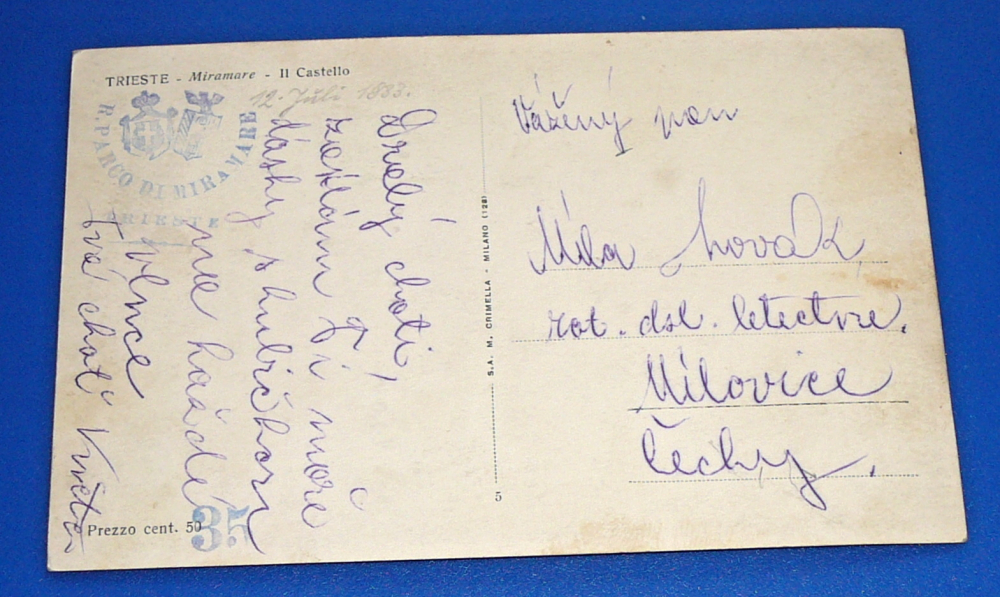 TRIESTE - Miramare - Il Castello
12. Juli 1883.
R. PARCO DI MIRAMARE
TRIESTE
Drahý choti,
zasílám Ti moře
lásky s hubičkou
na každé
vlnce
Tvá choť Květa
Prezzo cent. 50
35
S. A. M. CRIMELLA - MILANO (129)
5
Vážený pan
Míla Novák
rot. dsl. letectva.
Milovice
Čechy.